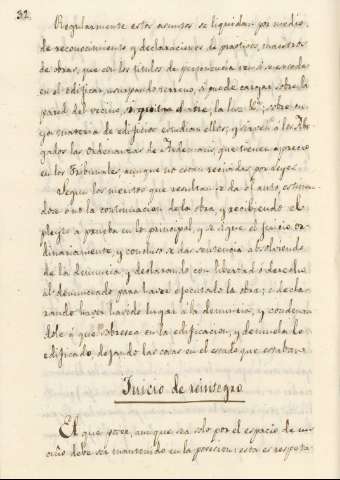 32
Regularmente estos asuntos se liquidan por medio
de reconocimiento y declaraciones de practicos, maestros
de obras, que con los titulos de pertenencia ven si se exceda
en el edificar, usurpando terreno, si puede cargar sobre la
pared del vecino, si quita el aire, la luz &ª; sobre cu-
ya materia de edificios estudian ellos, y sirven a los Abo-
gados las ordenanzas de Ardemans, que tienen aprecio
en los Tribunales, aunque no estan recividas por leyes.
Segun los meritos que resultan se da el auto, estiman-
dose ó no la continuacion de la obra, y recibiendo el
pleyto a prueba en lo principal, y se sigue el juicio or-
dinariamente, y concluso se da sentencia absolviendo
de la denuncia, y declarando con libertad ó derecho
al denunciado para haver ejecutado la obra; ó decla-
rando haver havido lugar á la denuncia, y condenan-
dole á que sobresea en la edificacion, y demuela lo
edificado, dejando las cosas en el estado que estaban.
Juicio de reinsegro
El que posee, aunque sea solo por el espacio de un
año debe ser mantenido en la posesion: esta es respeta-